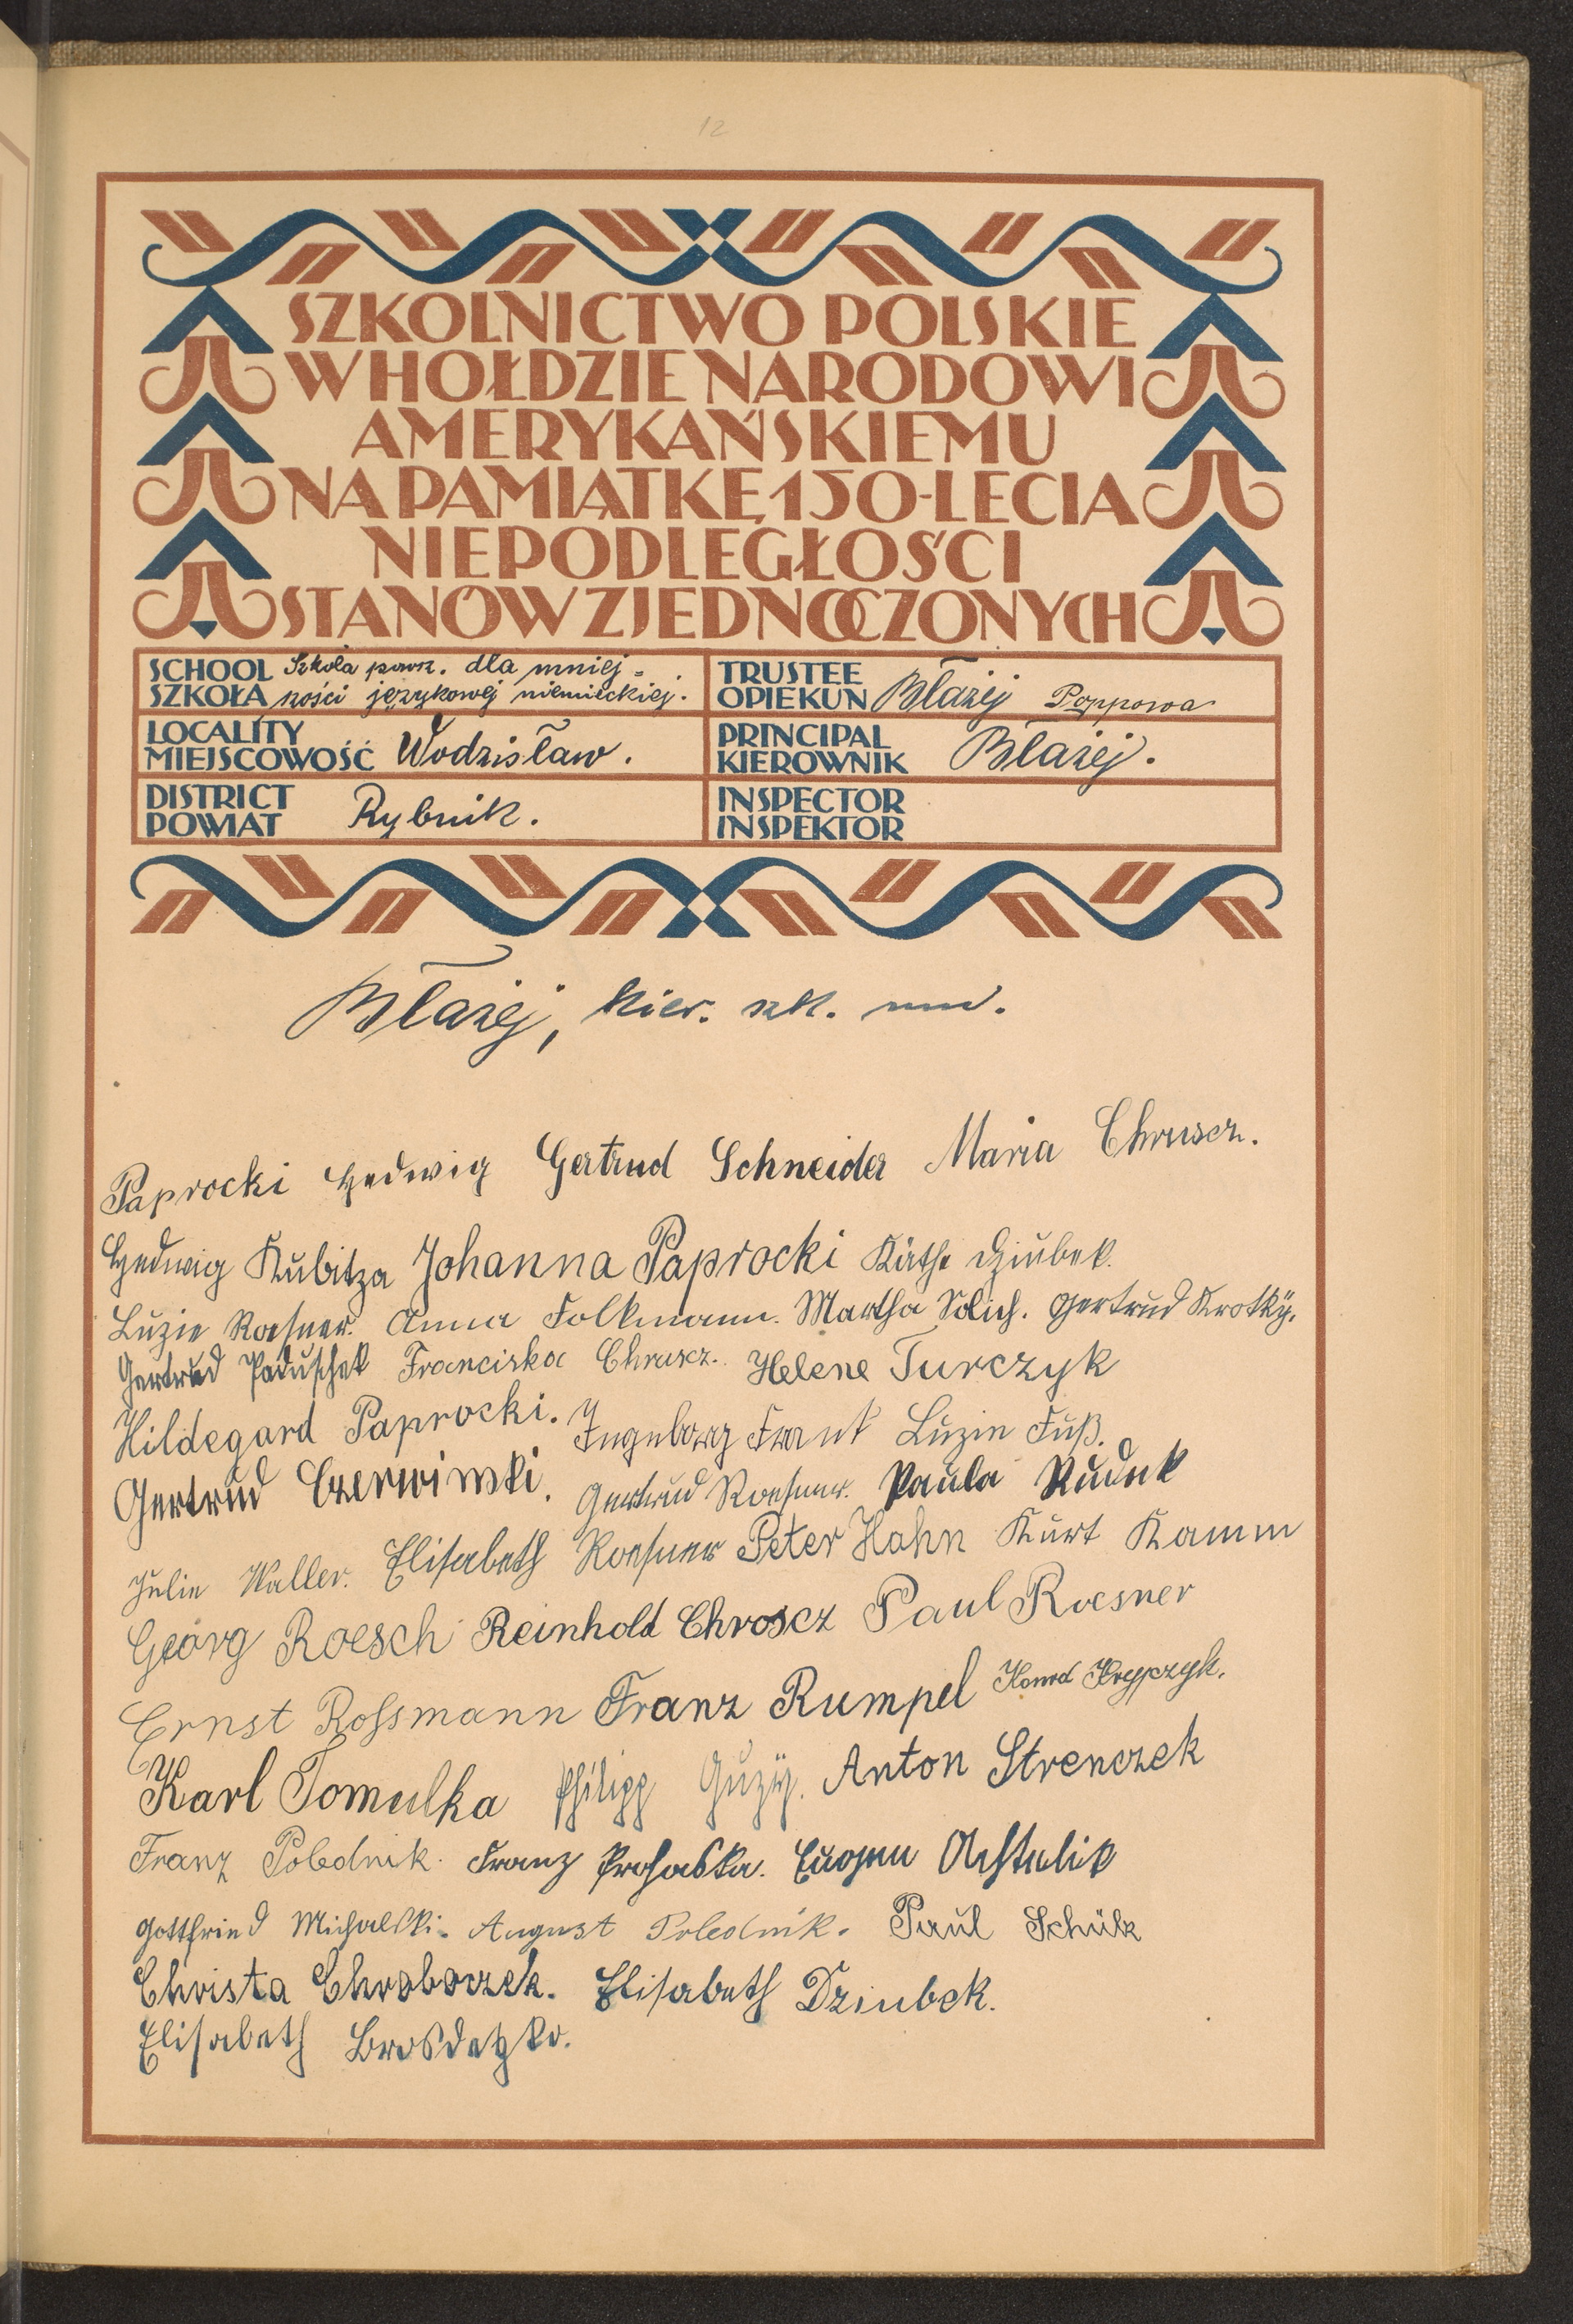 12
SZKOLNICTWO POLSKIE
W HOŁDZIE NARODOWI
AMERYKAŃSKIEMU
NA PAMIĄTKĘ 150-LECIA
NIEPODLEGŁOŚCI
STANÓW ZJEDNOCZONYCH
SCHOOL Szkoła powsz. dla mniej-
SZKOŁA ności językowej niemieckiej.
TRUSTEE
OPIEKUN Błażej Poppowa
LOCALITY
MIEJSCOWOŚĆ Wodzisław.
PRINCIPAL
KIEROWNIK Błażej.
DISTRICT
POWIAT Rybnik.
INSPECTOR
INSPEKTOR
Błażej, kier. szk. mn.
Paprocki Hedwig Gertrud Schneider Maria Chruscz.
Hedwig Kubitza Johanna Paprocki Käthe Dziubek.
Luzie Roesner. Anna Folkmann. Martha Solich. Gertrud Krotky.
Gertrud Paduschek Franciska Chruscz. Helene Turczyk
Hildegard Paprocki. Ingeborg Frank Luzie Fuß.
Gertrud Czerwinski. Gertrud Roesner. Paula Rudek
Julie Waller. Elisabeth Roesner Peter Hahn Kurt Kamm
Georg Roesch Reinhold Chroscz Paul Roesner
Ernst Rossmann Franz Rumpel
Karl Tomulka Philipp Guzy. Anton Strenczek
Franz Polednik. Franz Prohaska. Eugen
Gottfried Michalski. August Polednik. Paul Schülz
Christa Chroboczek. Elisabeth Dziubek.
Elisabeth Brosdetzko.